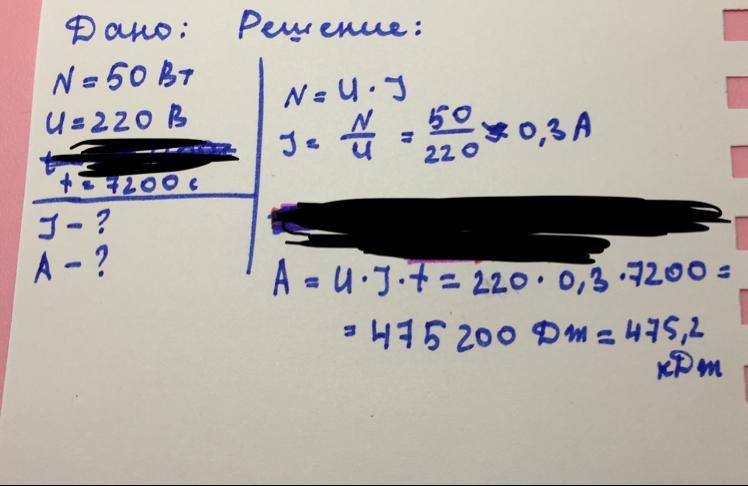 Дано:
N = 50 Вт
U = 220 В
t = 7200 с
J - ?
A - ?
Решение:
N = U · J
J = N/U = 50/220 ≈ 0,3 А
A = U · J · t = 220 · 0,3 · 7200 =
= 475 200 Dm = 475,2
кDm